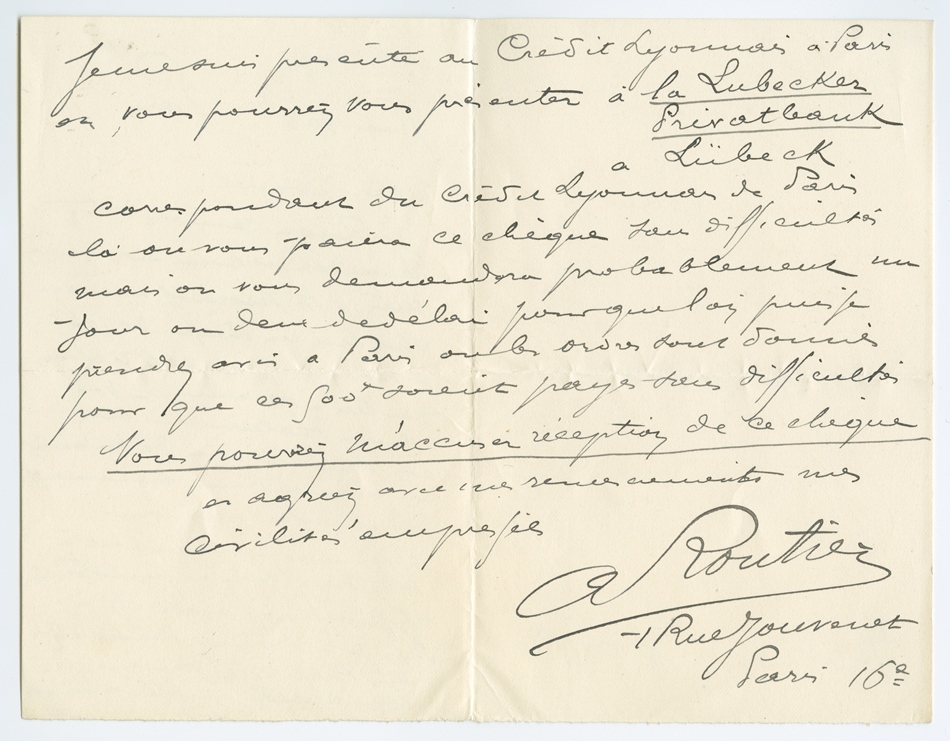 Je me suis présenté au Crédit Lyonnais à Paris
et vous pourrez vous présenter à la Lubecker
Privatbank
a Lübeck
correspondant du Crédit Lyonnais de Paris
là on vous paiera ce chèque sans difficultés
mais on vous demandera probablement un
jour ou deux de délai pour que l'on puisse
prendre avis a Paris ou les ordres sont donnés
pour que ces 500f soient payes sans difficultés
Vous pourrez m'accuser réception de ce chèque
et agréez avec mes remerciements mes
civilités empressées
A Routier
1 Rue Jouvenet
Paris 16e